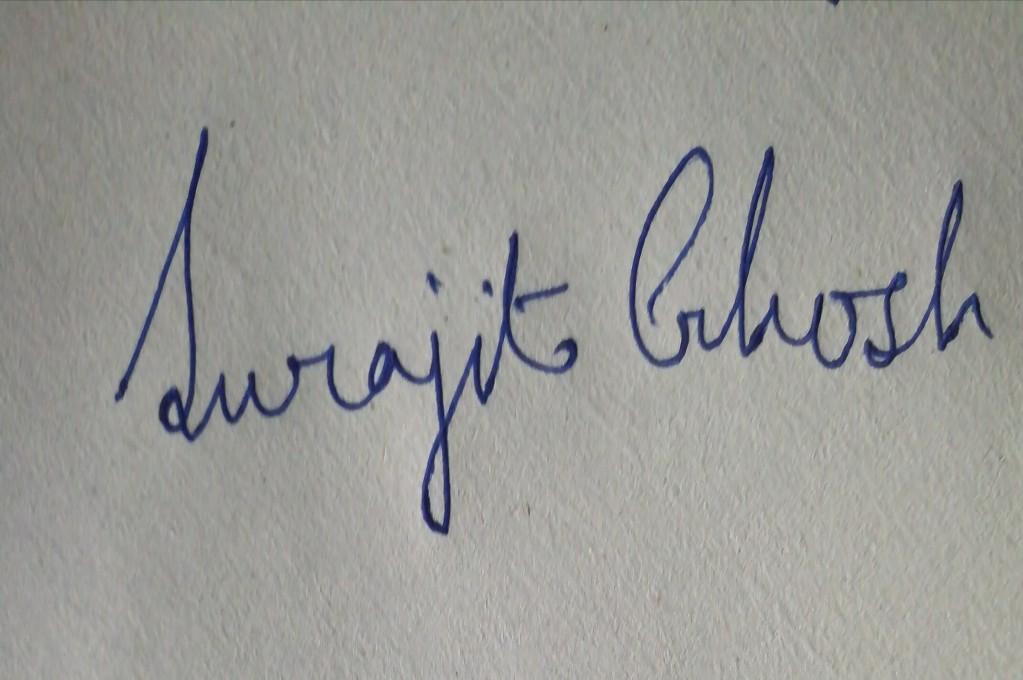 Surajit Ghosh